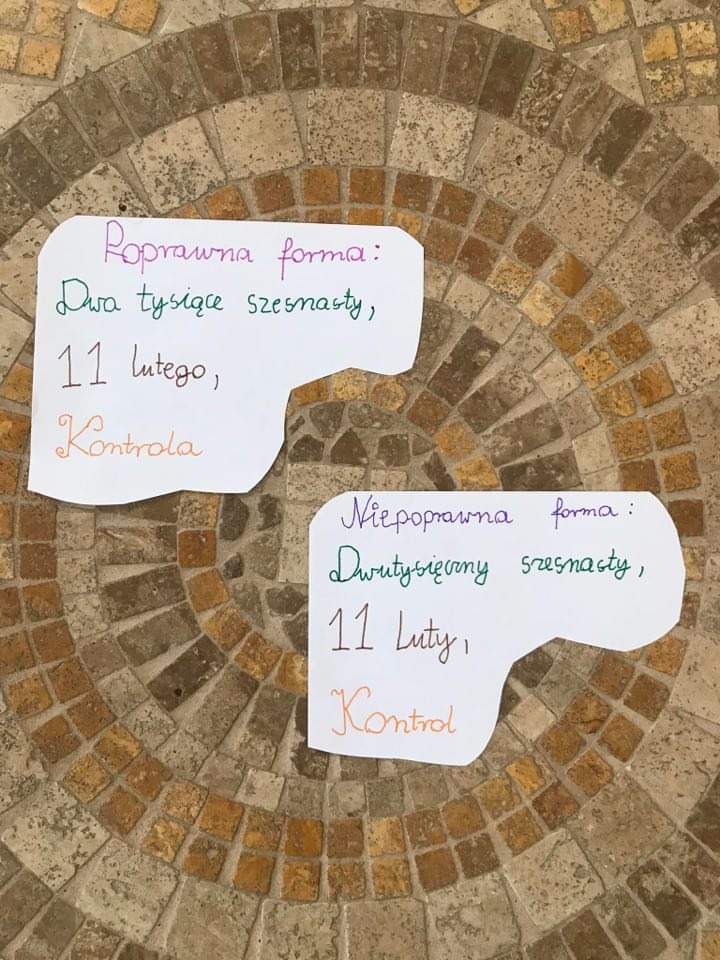 Poprawna forma:
Dwa tysiące szesnasty,
11 lutego,
Kontrola
Niepoprawna forma:
Dwutysięczny szesnasty,
11 Luty,
Kontrol